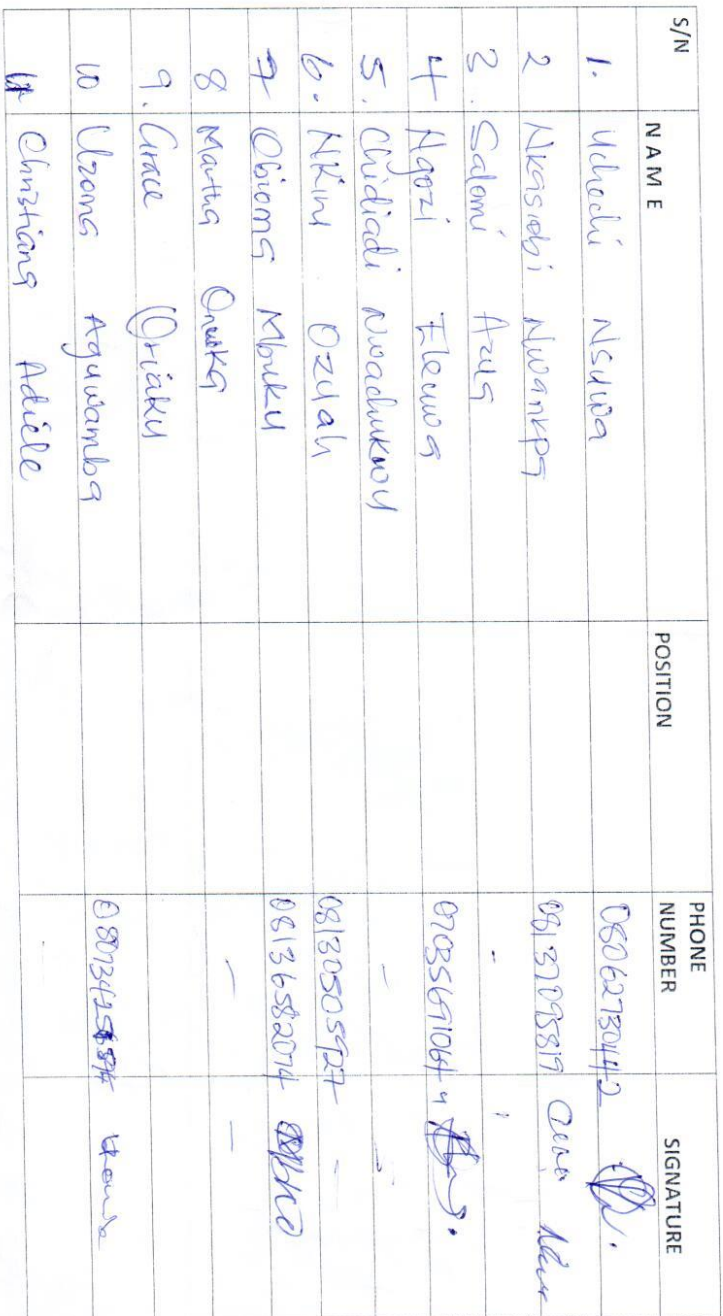 S/N NAME POSITION PHONE NUMBER SIGNATURE
1. Uchechi Nsuwa 08062730442
2 Nkasiobi Nwankpa 08137093819
3. Salomi Azua -
4 Ngozi Eleuwa 07035691064
5. Chidiadi Nwachukwu -
6. NKini Ozuah 08130505927 -
7 Obioma Mbuku 08136582014
8 Martha Onuoka - -
9. Grace Oriaku
10 Uzoma Aguwamba
11 Christiana Adiele